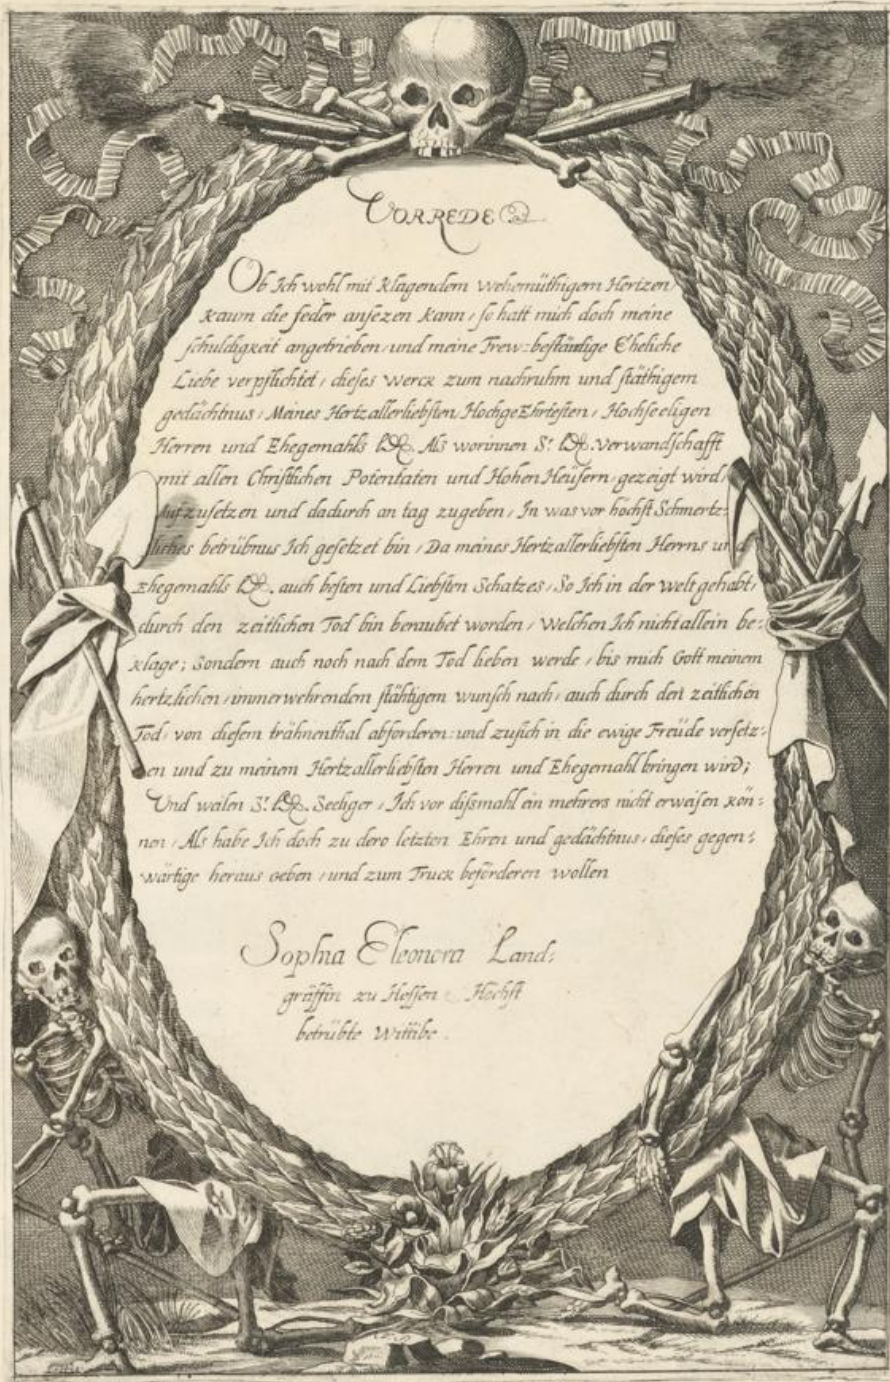 VORREDE
Ob Ich wohl mit klagendem wehemüthigem Hertzen
kaum die feder ansezen kann / so hatt mich doch meine
schuldigkeit angetrieben / und meine Trew=beständige Eheliche
Liebe verpflichtet / dieses werck zum nachruhm und stäthigem
gedächtnus / Meines Hertzallerliebsten / HochgeEhrtesten / Hochseeligen
Herren und Ehegemahls Als worinnen Sr. verwandschafft
mit allen Christlichen Potentaten und Hohen Heüsern / gezeigt wird /
Aufzusetzen und dadurch an tag zugeben / In was vor höchst Schmertz=
liches betrübnus Ich gesetzet bin / Da meines Hertzallerliebsten Herrns und
Ehegemahls auch besten und Liebsten Schatzes / So Ich in der welt gehabt /
durch den zeitlichen Tod bin beraubet worden / Welchen Ich nicht allein be=
klage; Sondern auch noch nach dem Tod lieben werde / bis mich Gott meinem
hertzlichen / immerwehrendem stähtigem wunsch nach / auch durch den zeitlichen
Tod / von diesem trähnenthal abforderen: und zusich in die ewige Freüde versetz=
en und zu meinem Hertzallerliebsten Herren und Ehegemahl bringen wird;
Und weilen Sr. Seeliger / Ich vor dissmahl ein mehrers nicht erweisen kön=
nen / Als habe Ich doch zu dero letzten Ehren und gedächtnus / dieses gegen=
wärtige heraus geben / und zum Truck beförderen wollen
Sophia Eleonora Land=
gräffin zu Hessen Höchst
betrübte Wittibe.